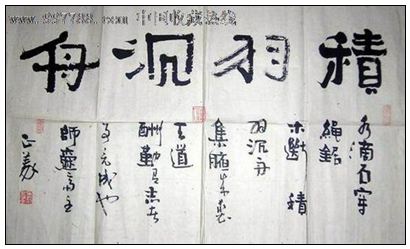 www.997788.com 中国收藏热线
積羽沉舟
水滴石穿
繩鋸
木斷 積
羽沉舟
集腋成裘
天道
酬勤有志者
事竟成也